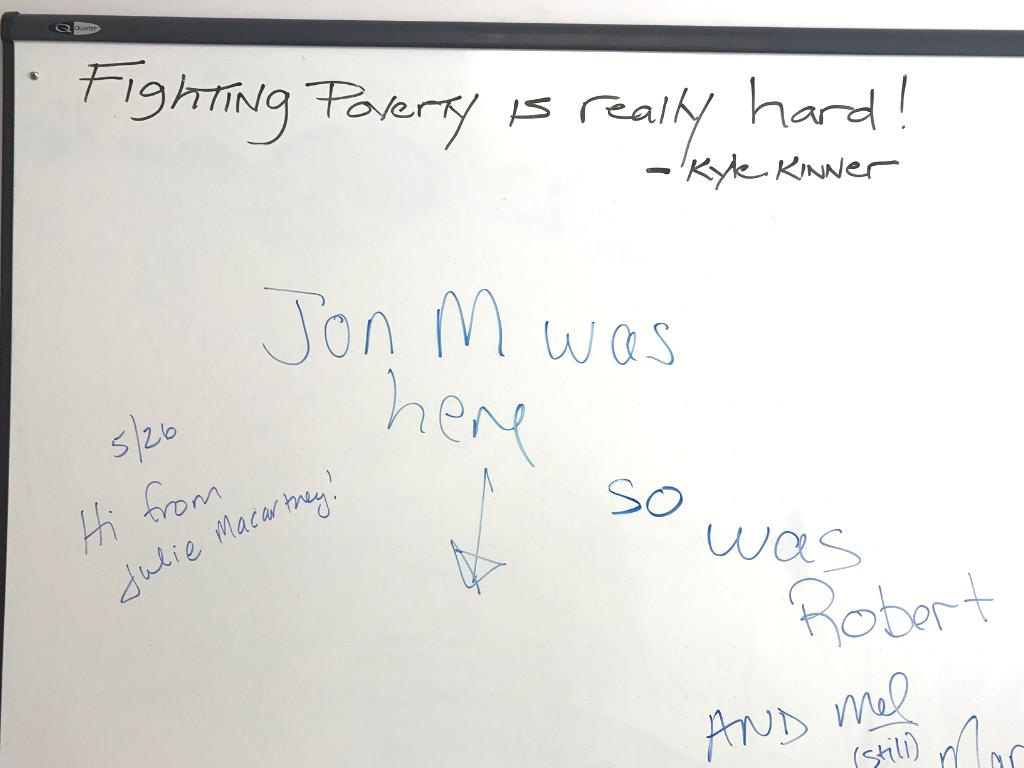 Quartet
Fighting Poverty is really hard!
- Kyle Kinner
Jon M was
here
5/26
Hi from
Julie Macartney!
so
was
Robert
AND mel
(still)